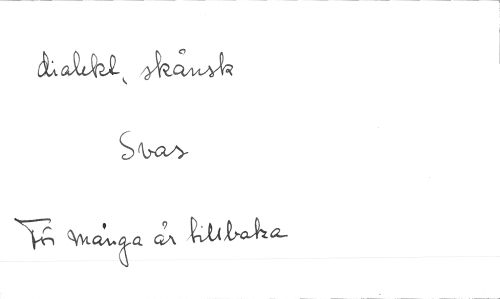 dialekt, skånsk
Svas
För många år tillbaka